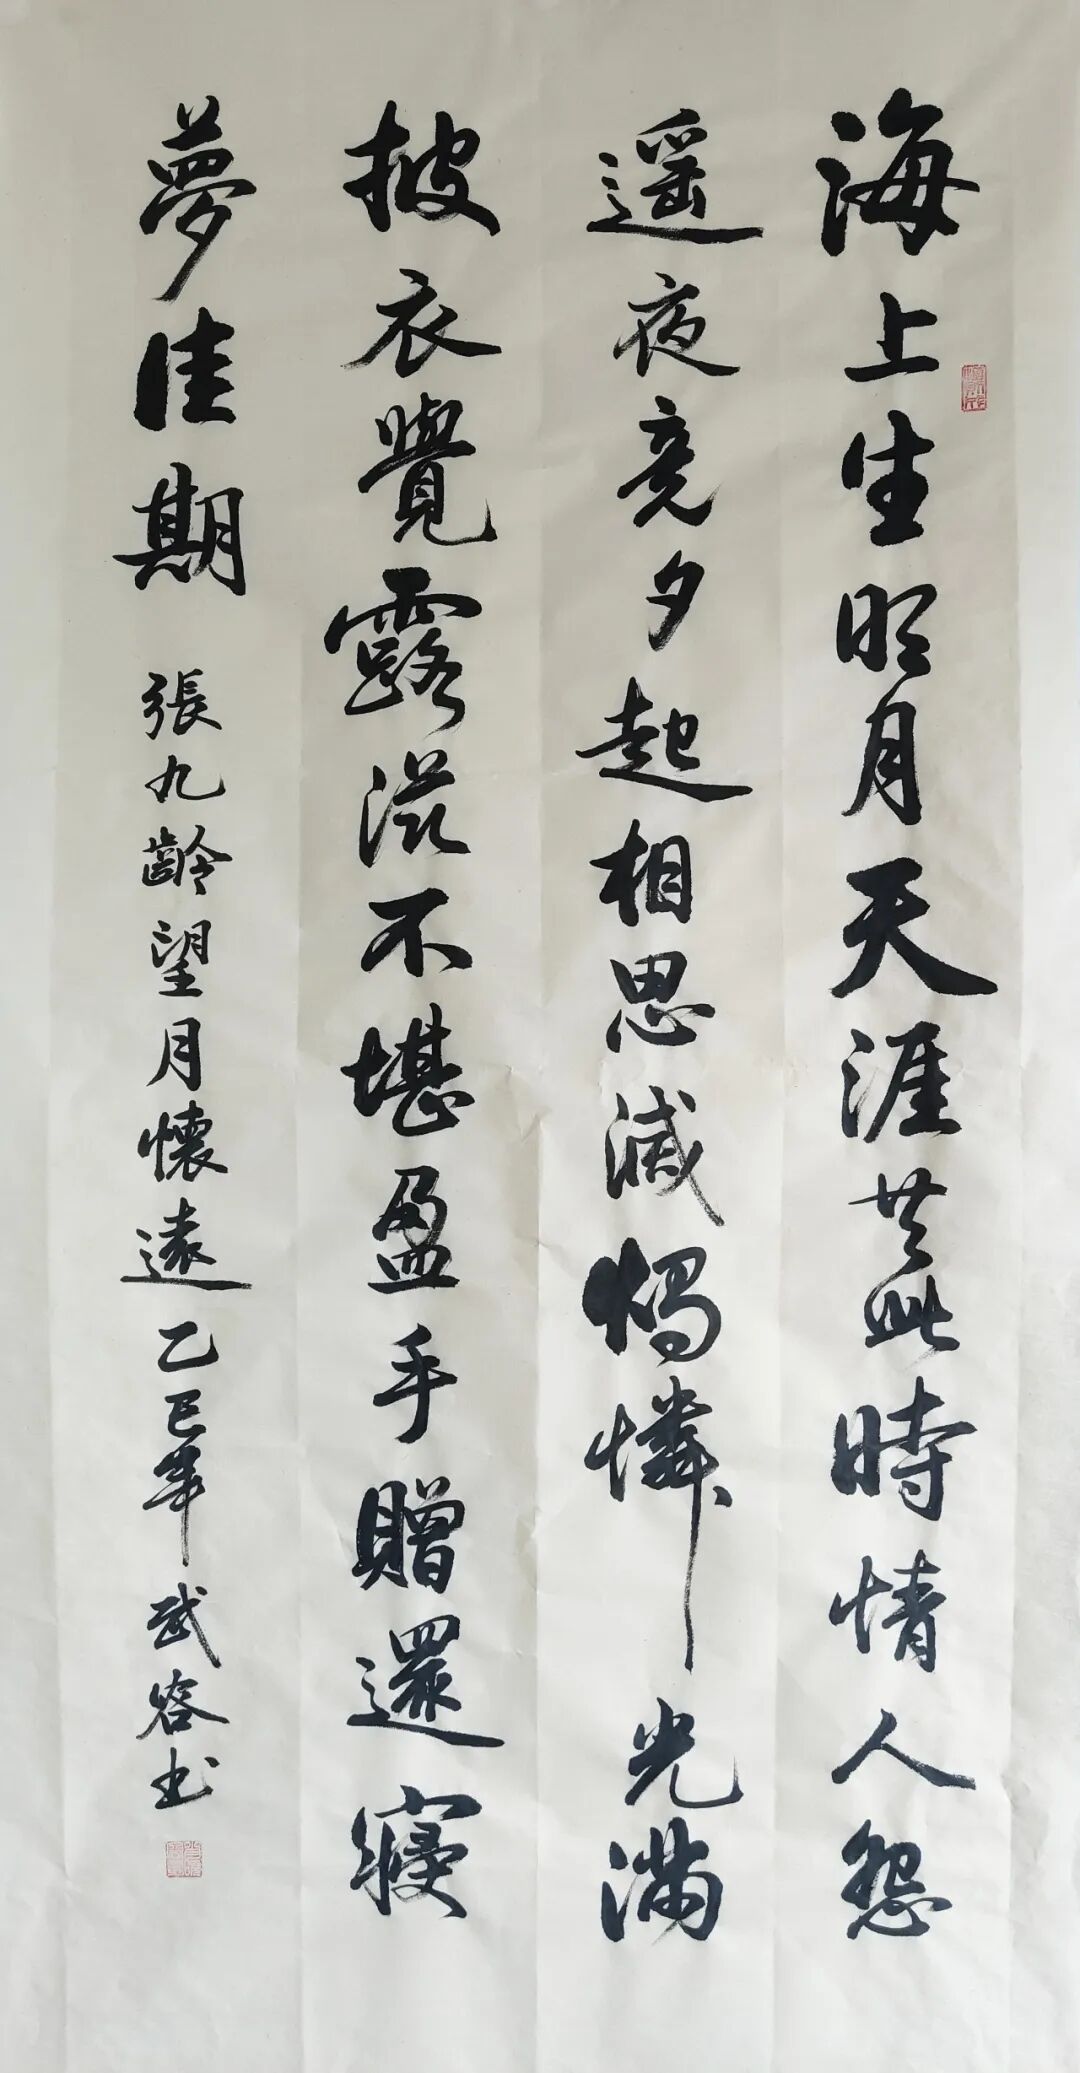 海上生明月天涯共此時情人怨
遥夜竟夕起相思滅燭憐光滿
披衣覺露滋不堪盈手贈還寢
夢佳期 張九齡望月懷遠乙巳年武容书